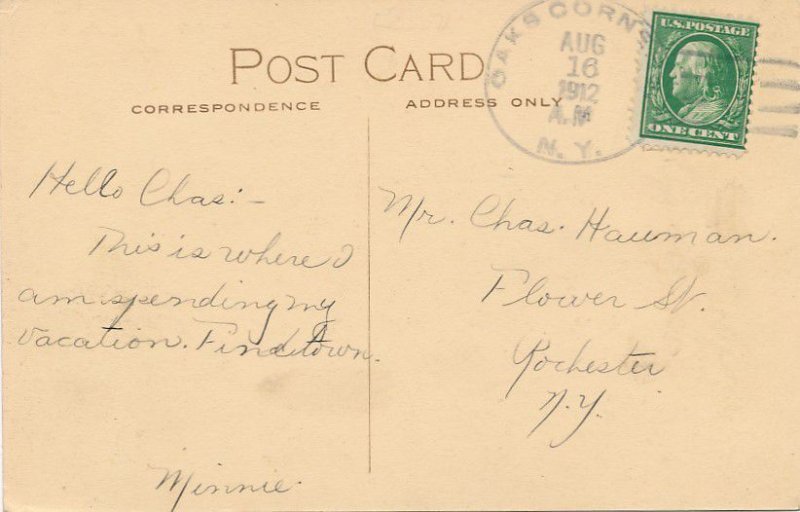 POST CARD
CORRESPONDENCE
ADDRESS ONLY
OAKS CORNS
AUG
16
1912
A.M
N.Y.
U.S. POSTAGE
ONE CENT
Hello Chas:-
This is where I
am spending my
vacation. Fine town.
Minnie.
Mr. Chas. Hauman.
Flower St.
Rochester
N.Y.